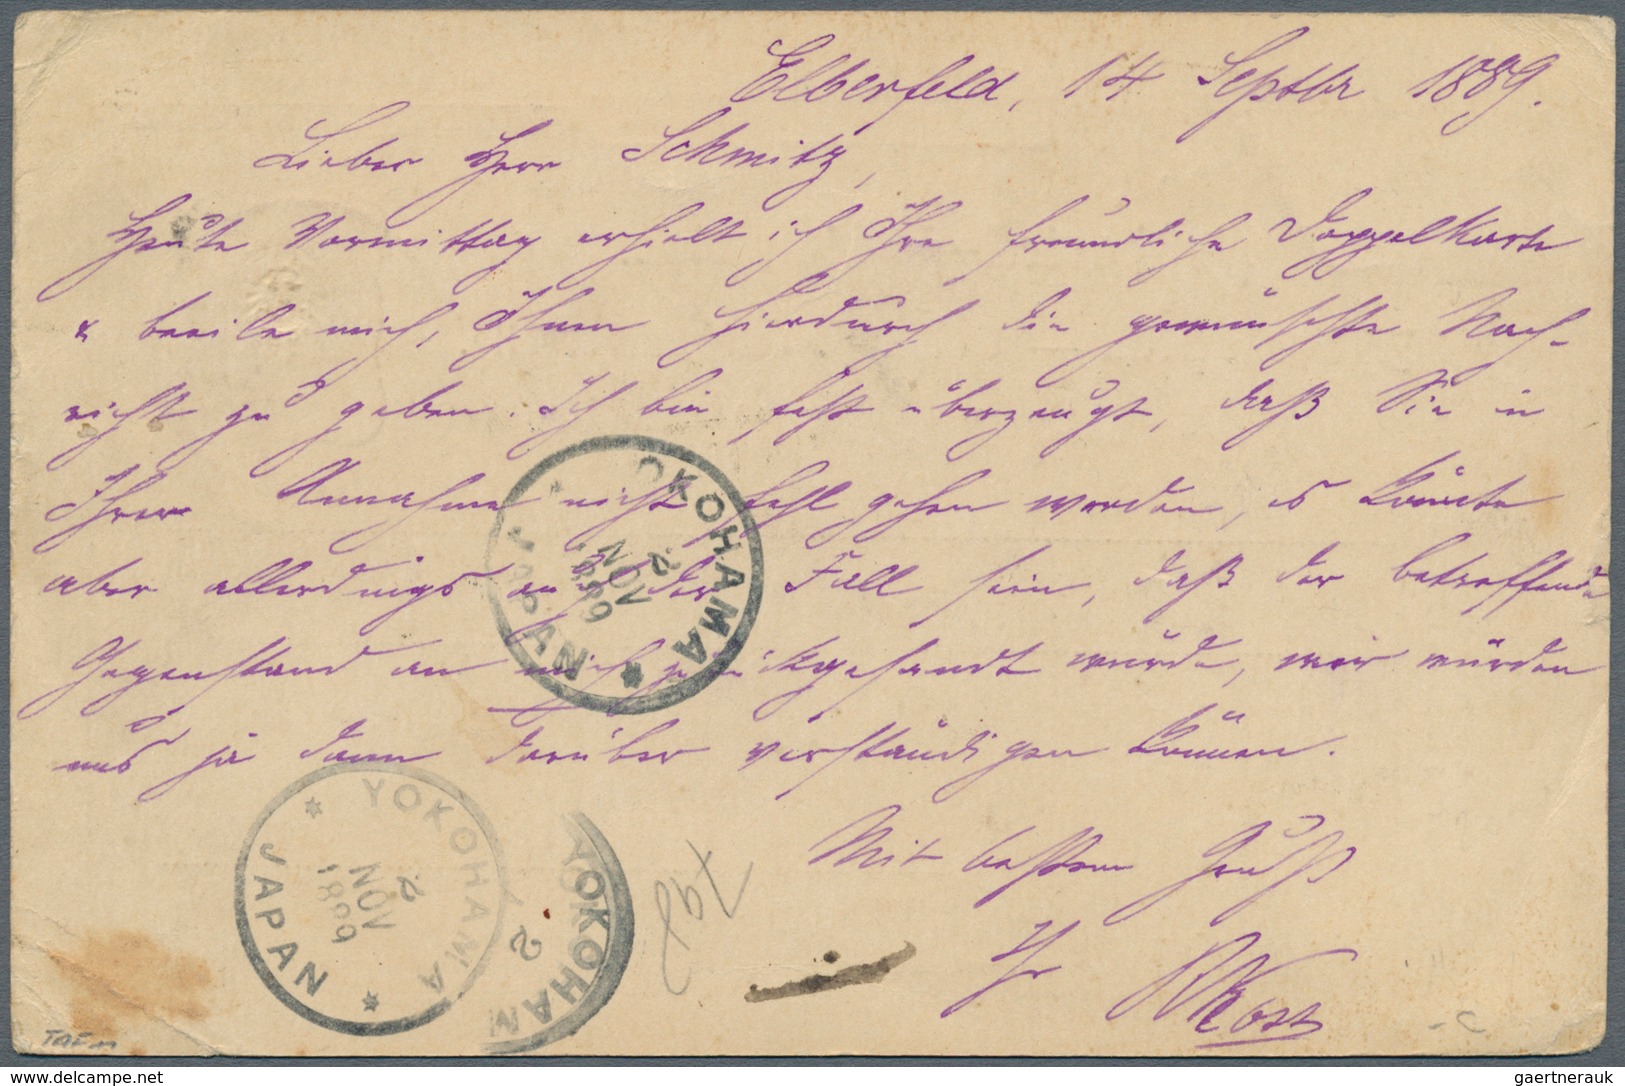 Elberfeld, 14 Septbr 1889.
Lieber Herr Schmitz,
Heute Vormittag erhielt ich Ihre freundliche Doppelkarte
& beeile mich, Ihnen hierdurch die gewünschte Nach-
richt zu geben. Ich bin fest überzeugt, daß Sie in
Ihrer Annahme nicht fehl gehen werden, es könnte
aber allerdings auch der Fall sein, daß der betreffende
Gegenstand an mich zurückgesandt würde, wir würden
uns ja dann darüber verständigen können.
Mit bestem Gruß
Ihr
YOKOHAMA
2
NOV
1899
JAPAN
YOKOHAMA
2
NOV
1899
JAPAN
YOKOHAM
2
gaertnerauk / delcampe.net